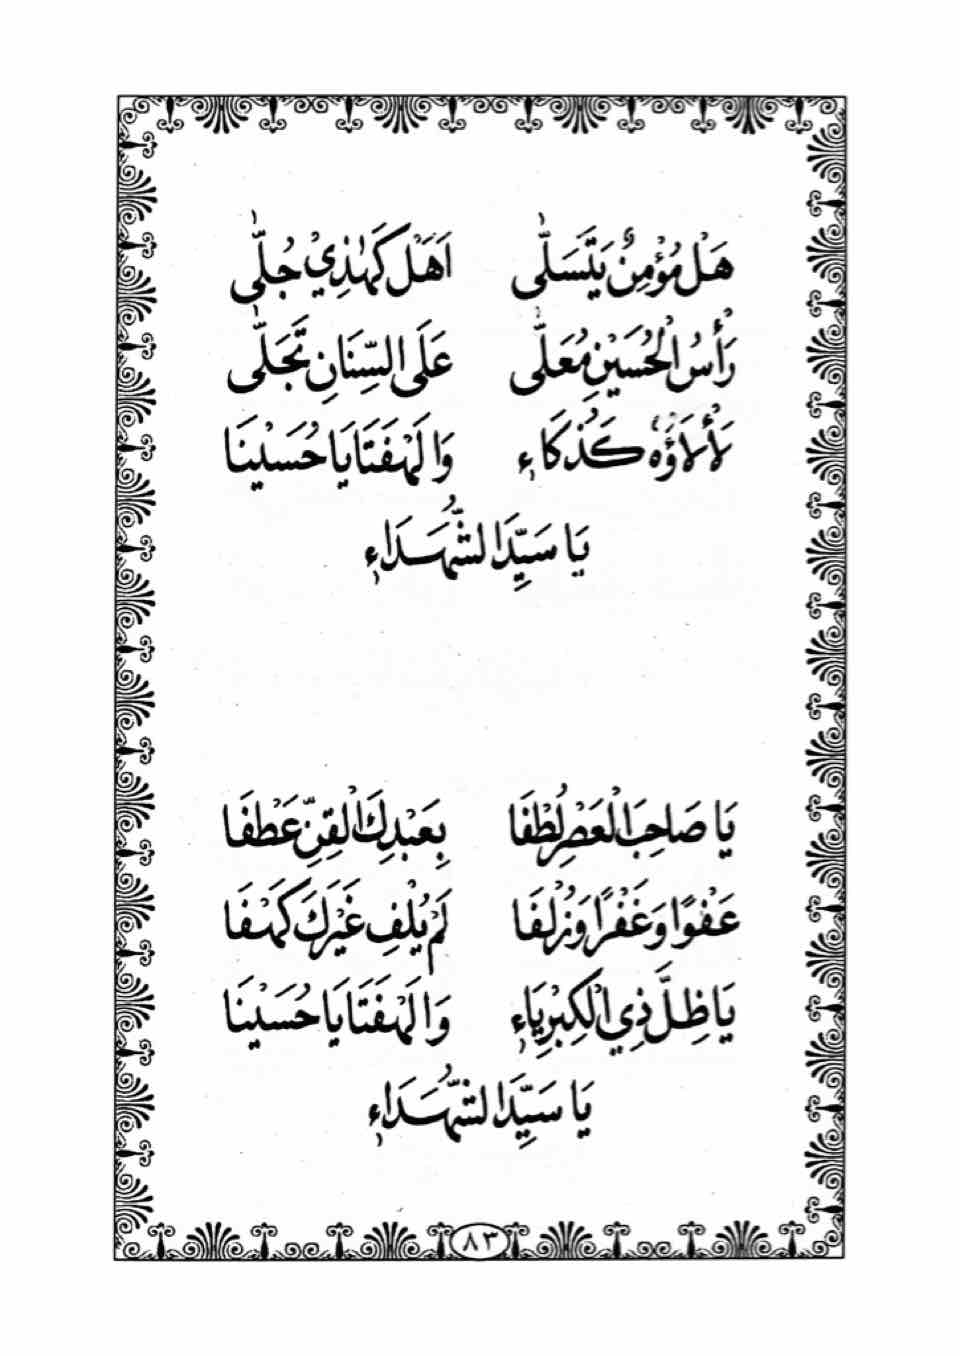 هَلْ مُؤْمِنٌ يَتَسَلّٰى اَهَلْ كَهٰذِيْ جُلّٰى
رَأْسُ الْحُسَيْنِ مُعَلّٰى عَلَى السِّنَانِ تَجَلّٰى
لَأْلَاؤُهٗ كَذُكَاءِ وَالَهْفَتَا يَا حُسَيْنَا
يَا سَيِّدَ الشُّهَدَاءِ
يَا صَاحِبَ الْعَصْرِ لُطْفَا بِعَبْدِكَ الْقِنِّ عَطْفَا
عَفْوًا وَغَفْرًا وَزُلْفَا لَمْ يُلْفِ غَيْرَكَ كَهْفَا
يَا ظِلَّ ذِي الْكِبْرِيَاءِ وَالَهْفَتَا يَا حُسَيْنَا
يَا سَيِّدَ الشُّهَدَاءِ
٨٣